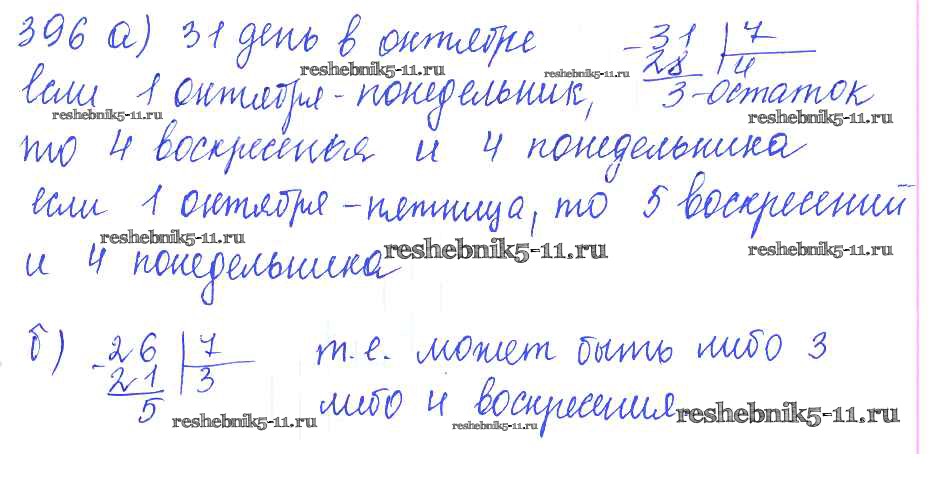 396 а) 31 день в октябре -31 | 7
reshebnik5-11.ru reshebnik5-11.ru 28 4
если 1 октября - понедельник, 3-остаток
reshebnik5-11.ru reshebnik5-11.ru
то 4 воскресенья и 4 понедельника
если 1 октября - пятница, то 5 воскресений
reshebnik5-11.ru reshebnik5-11.ru reshebnik5-11.ru
и 4 понедельника
б) -26 | 7 т.е. может быть либо 3
21 3
5 либо 4 воскресения
reshebnik5-11.ru reshebnik5-11.ru reshebnik5-11.ru